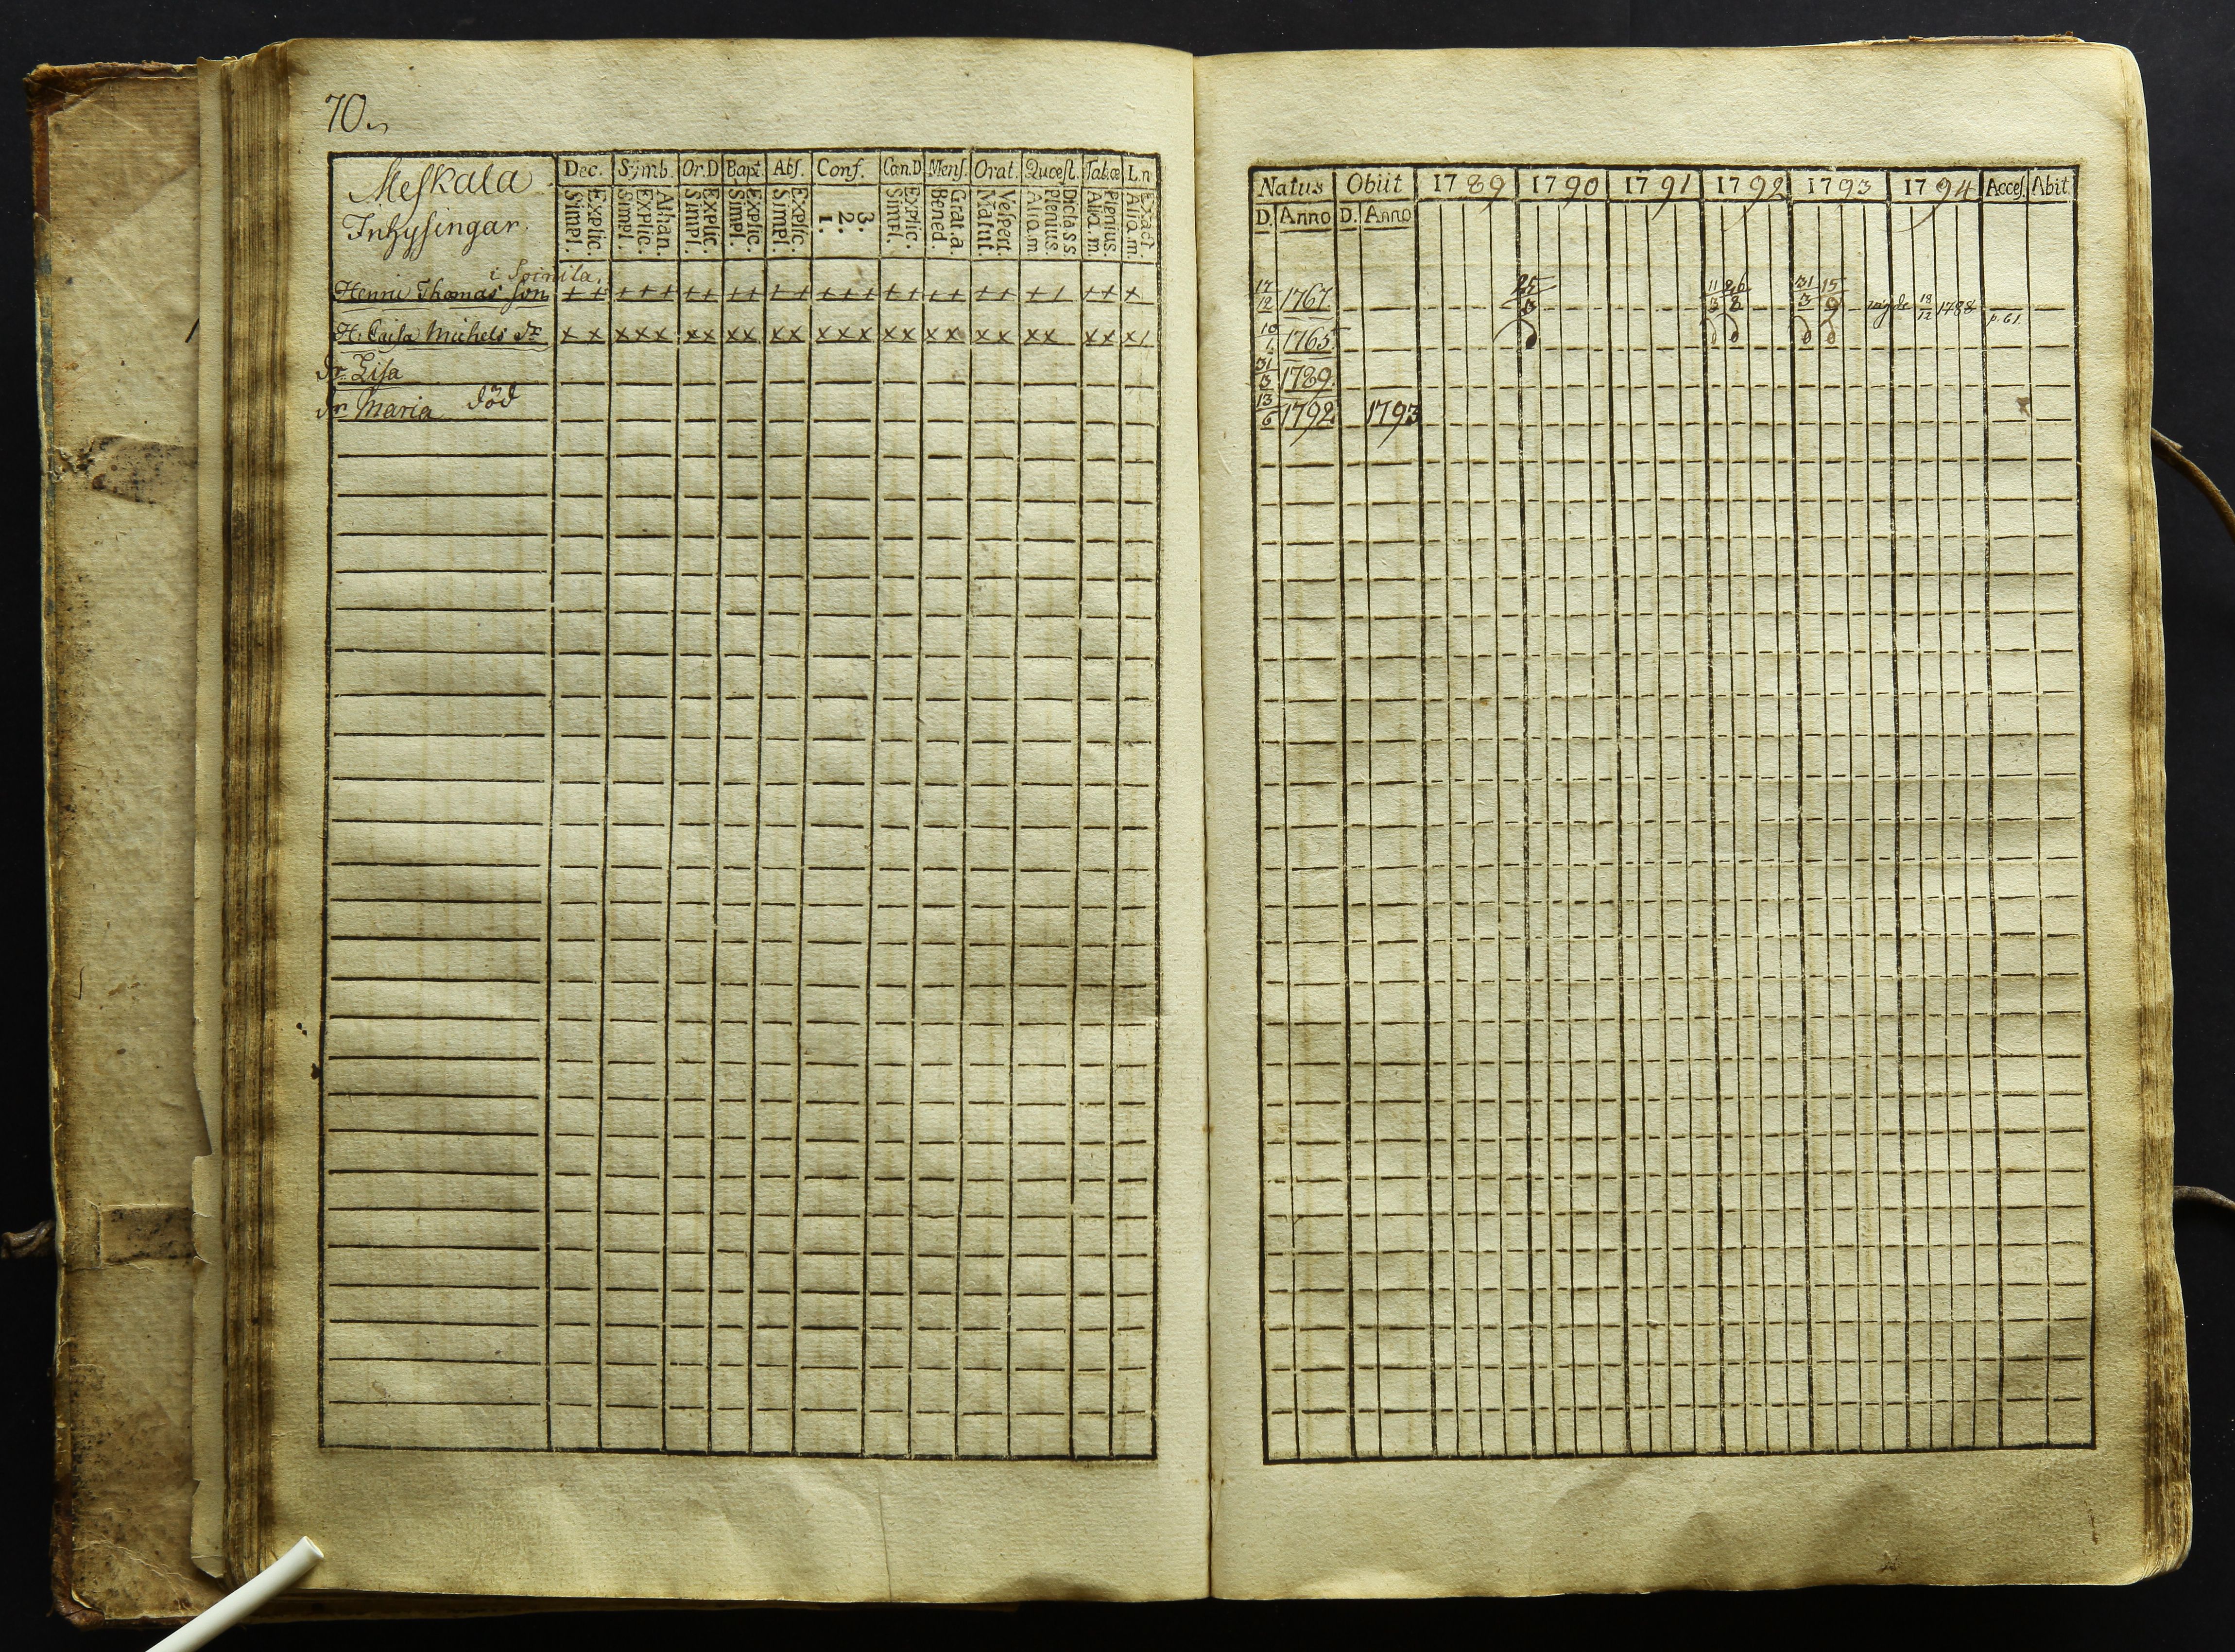 70.
Meskala
Inhysingar
Dec. Symb. Or.D Bapt Abs. Conf. Can.D Mens. Orat. Quæst. Tab.œ L.n
Simpl. Explic. Simpl. Explic. Athan. Simpl. Explic. Simpl. Explic. Simpl. Explic. 1. 2. 3. Simpl. Explic. Bened. Grat.a. Matut. Vespert. Aliq.m Plenius. Dicta SS Aliq.m Plenius. Aliq.m Exact.
i Soinila.
Henric Thomas son + + + + + + + + + + + + + + + + + + + + + + / + + x
H. Caisa Michels dr x x x x x x x x x x x x x x x x x x x x x x x x x x /
dr. Lisa
dr Maria död
Natus Obiit 1789 1790 1791 1792 1793 1794 Acces. Abit
D. Anno D. Anno
17/12 1767. 25/3 11/3 26/8 31/3 15/9 18/12 1788 p. 61.
10/1. 1765.
31/3 1789.
13/6 1792. 1793